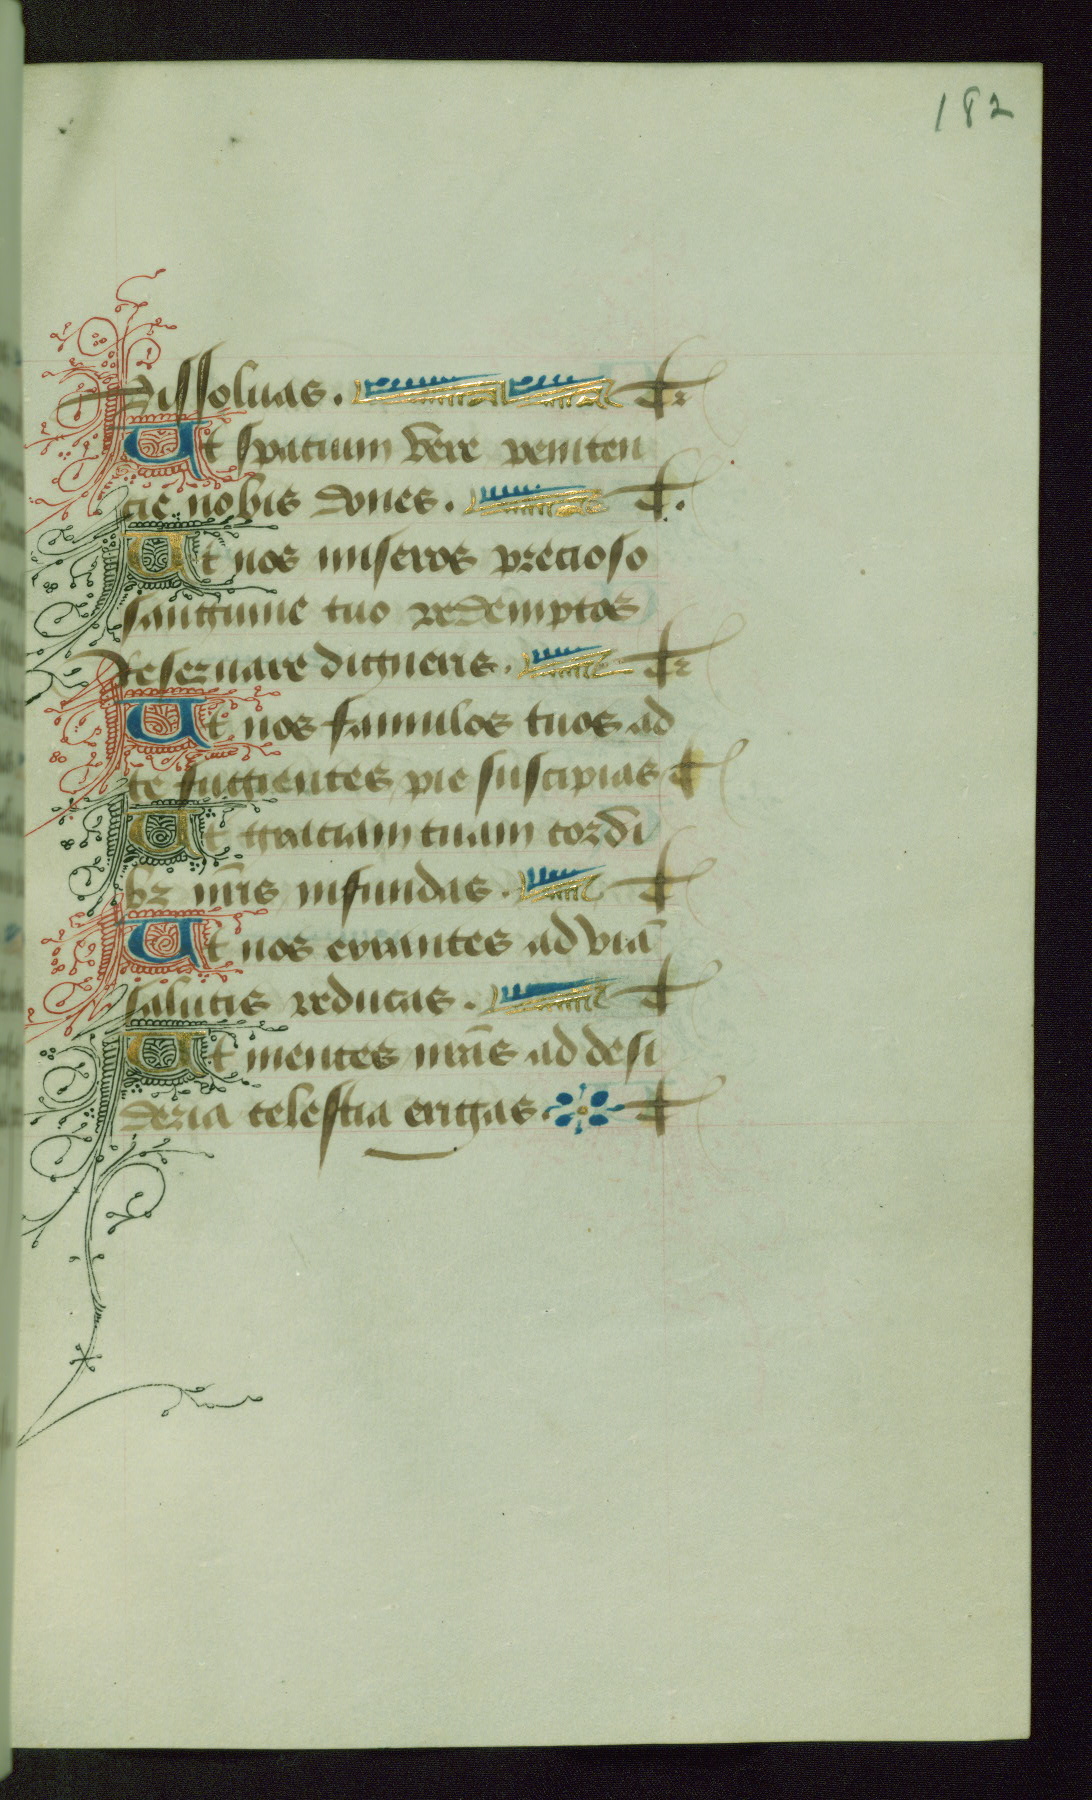 182
dissoluas. Tr
Ut spacium vere peniten
cie nobis dones. T.
Ut nos miseros precioso
sanguine tuo redemptos
Reseruare digneris. Tr
Ut nos famulos tuos ad
te fugientes pie suscipias T
Ut graciam tuam cordi
bz nr̄is infundas. T
Ut nos errantes ad viā
salutis reducas. T
Ut mentes nrās ad desi
deria celestia erigas. T